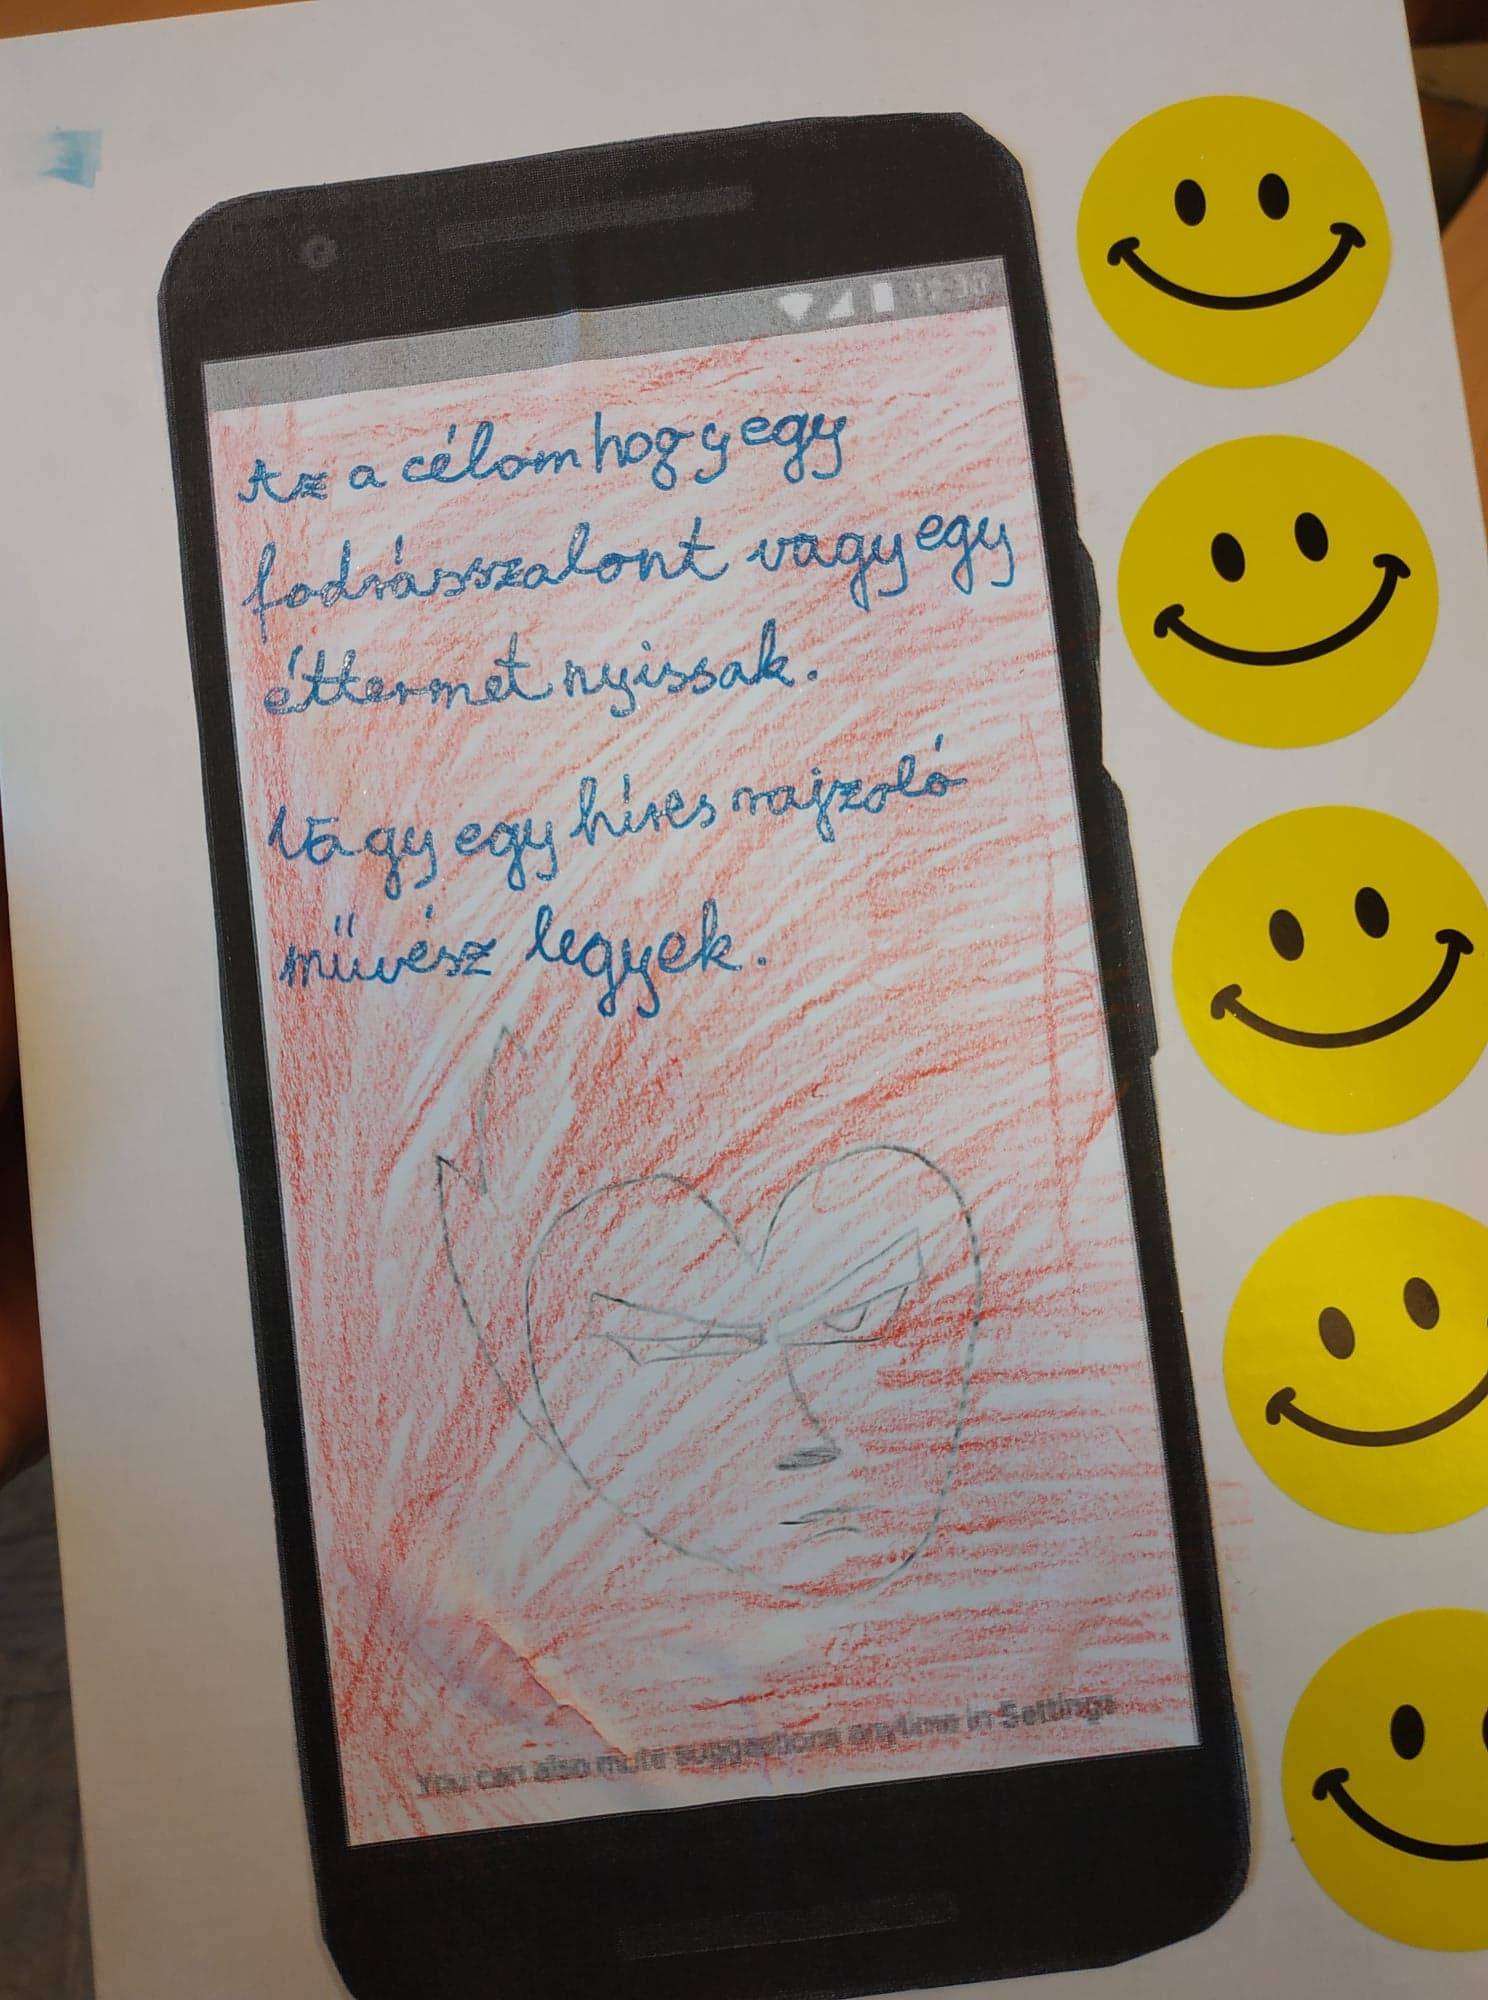 12:30
Az a célom hogy egy
fodrásszalont vagy egy
éttermet nyissak.
Vagy egy híres rajzoló
művész legyek.
You can also mute suggestions anytime in Settings